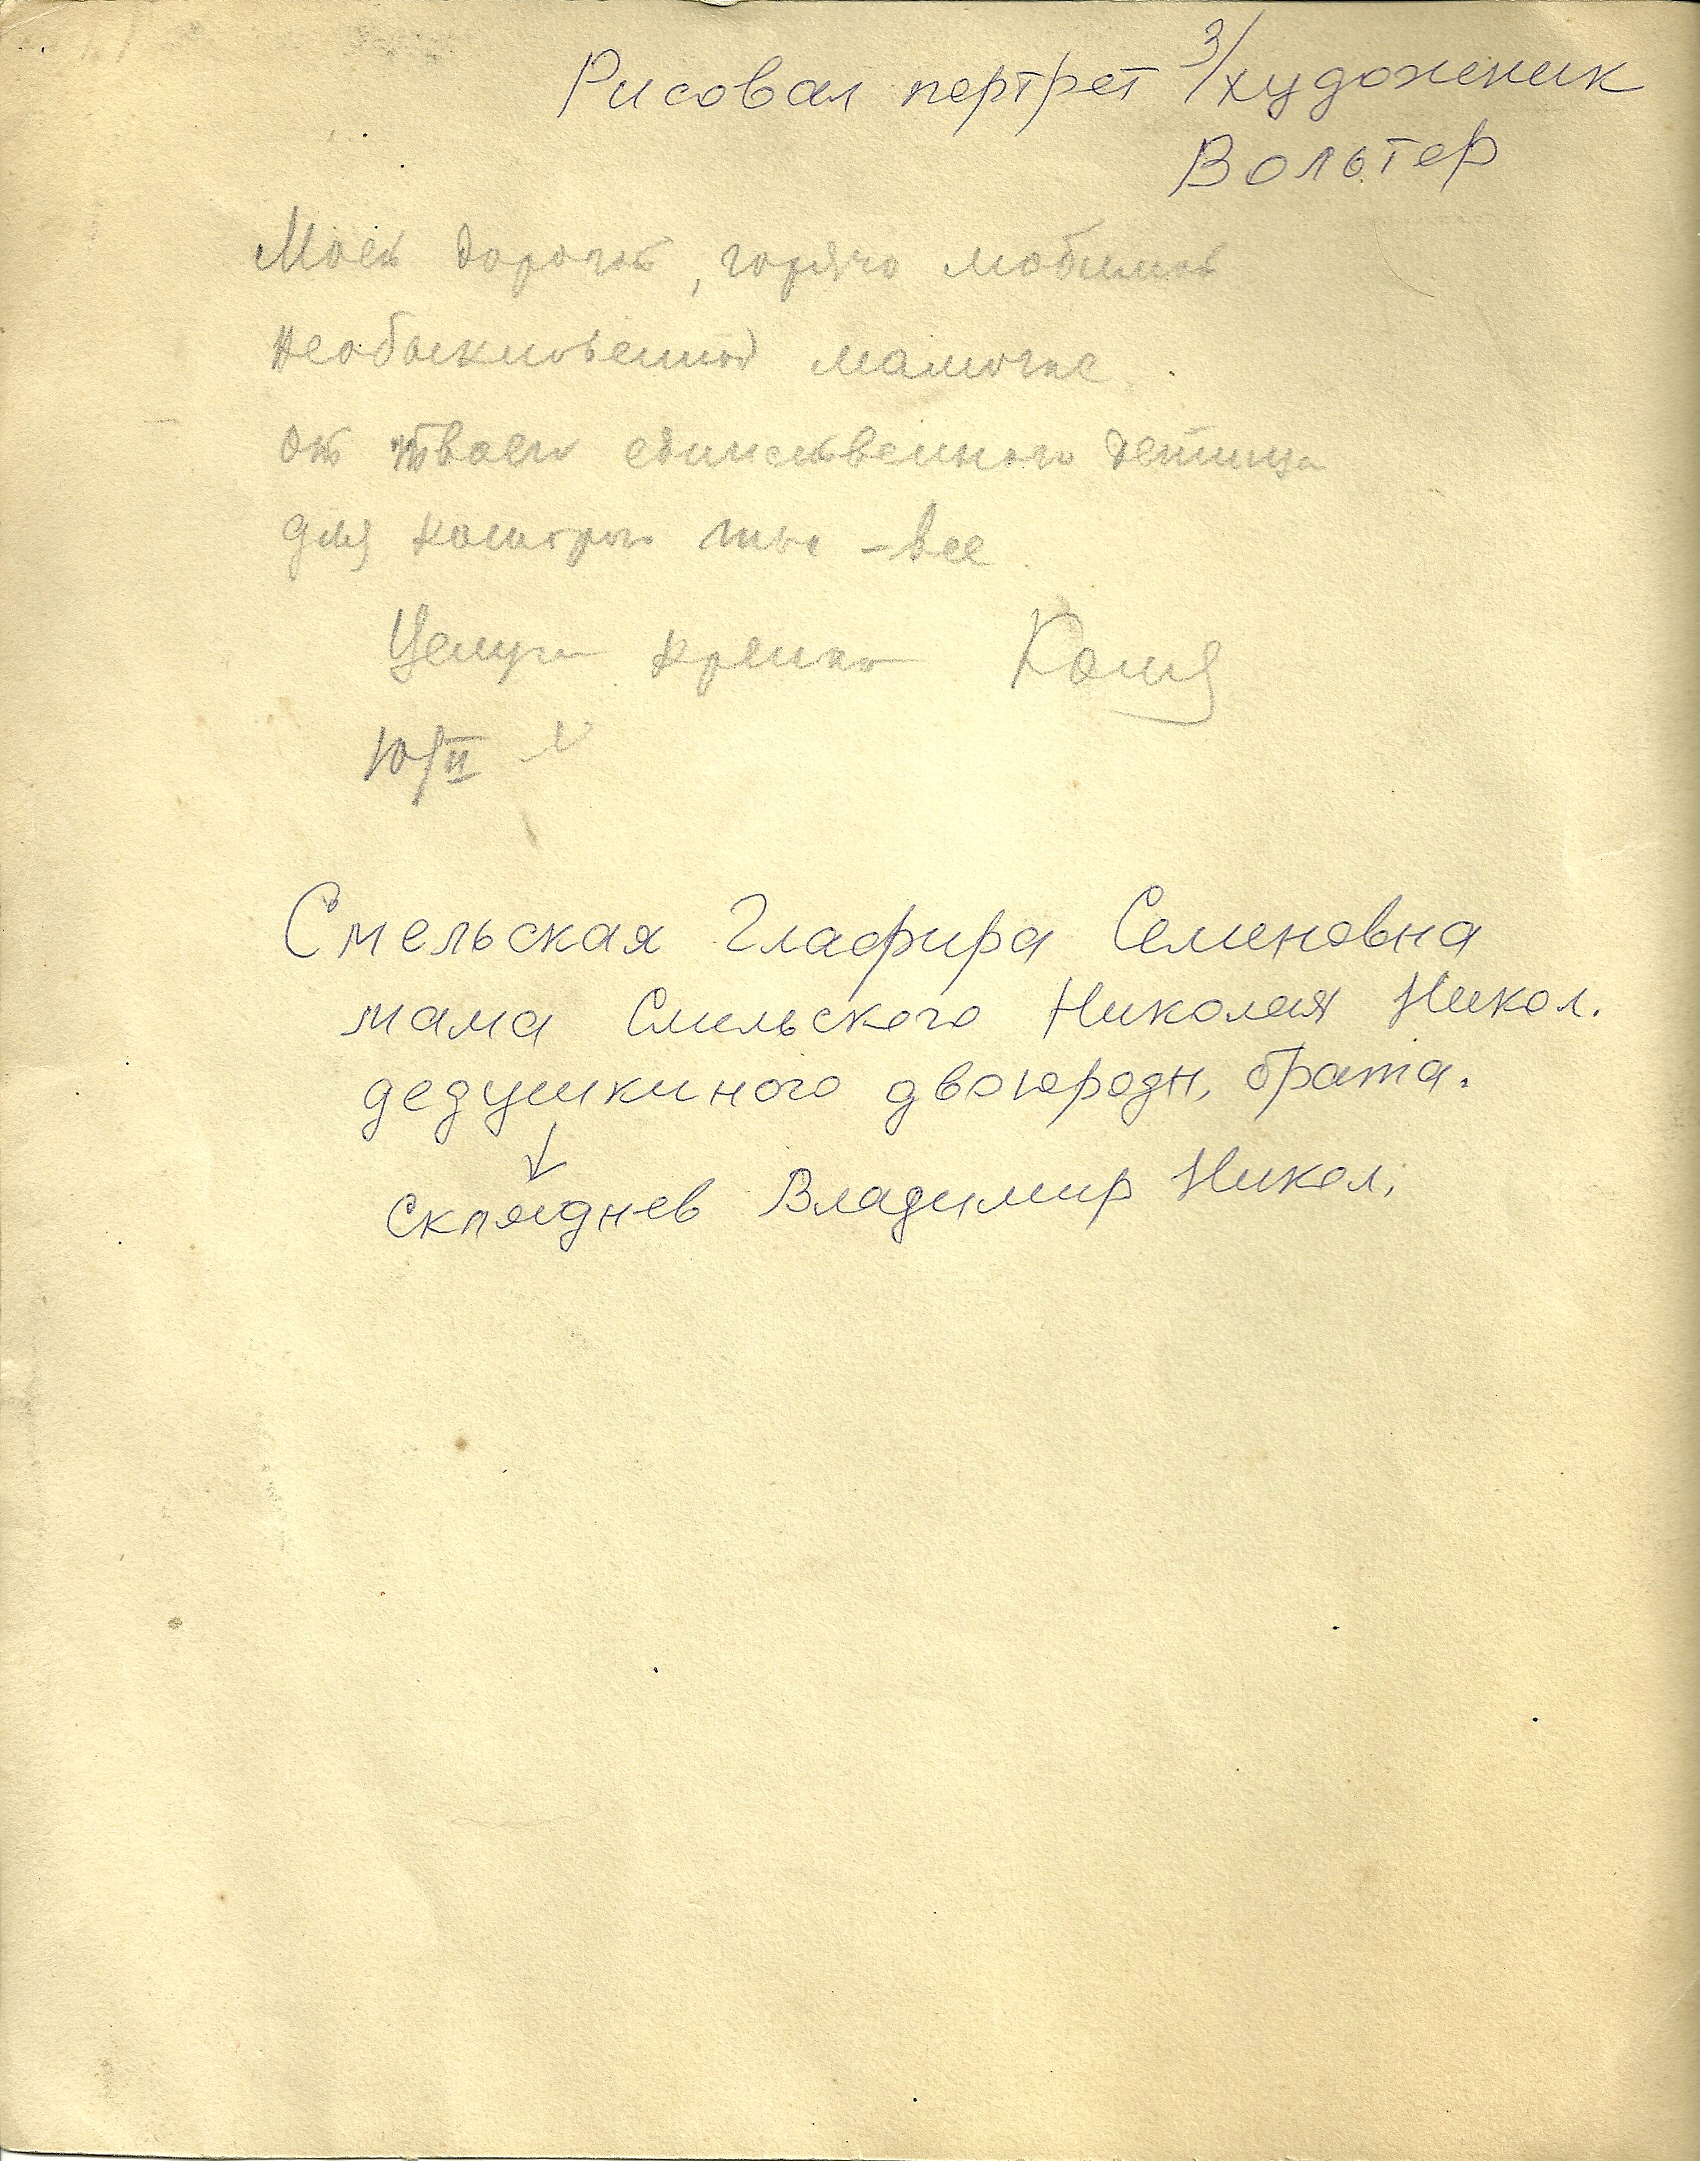 Рисовал портрет з/художник
Вольтер
Моей дорогой, горячо любимой
необыкновенной мамочке
от твоего единственного детища
для которого ты - все
Целую крепко Коля
10/II
Смельская Глафира Семеновна
мама Смельского Николая Никол.
дедушкиного двоюродн. брата.
↓
Владимир Никол.